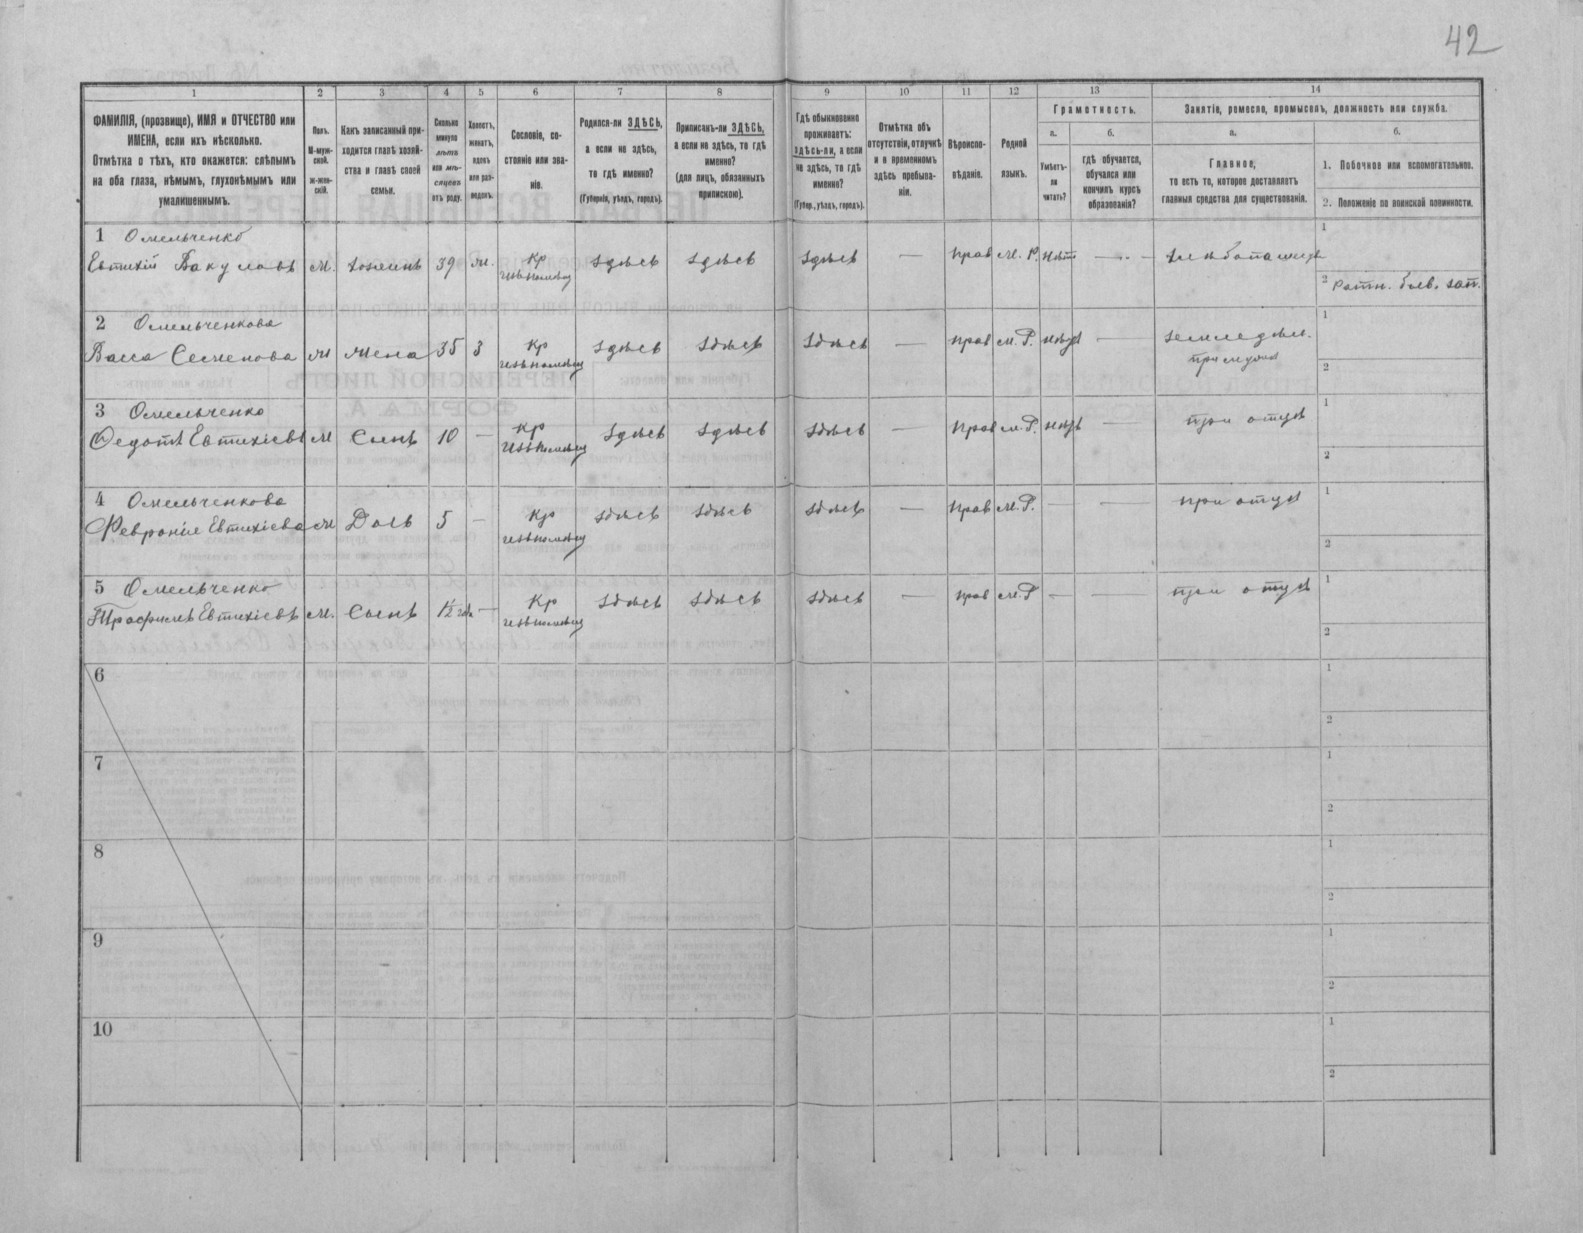 42
1 2 3 4 5 6 7 8 9 10 11 12 13 14
ФАМИЛІЯ, (прозвище), ИМЯ и ОТЧЕСТВО или
ИМЕНА, если ихъ нѣсколько.
Отмѣтка о тѣхъ, кто окажется: слѣпымъ
на оба глаза, нѣмымъ, глухонѣмымъ или
умалишеннымъ.
Полъ.
М-муж-
ской.
Ж-жен-
скій.
Какъ записанный при-
ходится главѣ хозяй-
ства и главѣ своей
семьи.
Сколько
минуло
лѣтъ
или мѣ-
сяцевъ
отъ роду.
Холостъ,
женатъ,
вдовъ
или раз-
веденъ.
Сословіе, со-
стояніе или зва-
ніе.
Родился-ли ЗДѢСЬ,
а если не здѣсь,
то гдѣ именно?
(Губернія, уѣздъ, городъ).
Приписанъ-ли ЗДѢСЬ,
а если не здѣсь, то гдѣ
именно?
(для лицъ, обязанныхъ
припискою).
Гдѣ обыкновенно
проживаетъ:
здѣсь-ли, а если
не здѣсь, то гдѣ
именно?
(Губер., уѣздъ, городъ).
Отмѣтка объ
отсутствіи, отлучкѣ
и о временномъ
здѣсь пребыва-
ніи.
Вѣроиспо-
вѣданіе.
Родной
языкъ.
Грамотность.
а.
Умѣетъ-
ли
читать?
б.
гдѣ обучается,
обучался или
кончилъ курсъ
образованія?
Занятіе, ремесло, промыселъ, должность или служба.
а.
Главное,
то есть то, которое доставляетъ
главныя средства для существованія.
б.
1. Побочное или вспомогательное.
2. Положеніе по воинской повинности.
1 Омельченко
Евтихій Вакуловъ м. хозяинъ 39 ж. Кр здѣсь здѣсь здѣсь — Прав М. Р. нѣтъ — 1
2 Ратн.
2 Омельченкова
Васса Семенова м жена 35 з Кр здѣсь здѣсь здѣсь — Прав М. Р. — земледѣл. 1
при мужѣ
2
3 Омельченко
Федотъ Евтихіевъ м Сынъ 10 — Кр здѣсь здѣсь здѣсь — Прав М. Р. — при отцѣ 1
2
4 Омельченкова
Февронія Евтихіева м Дочь 5 — Кр здѣсь здѣсь здѣсь — Прав М. Р. — — при отцѣ 1
2
5 Омельченко
Трофимъ Евтихіевъ м. Сынъ 1½ — Кр здѣсь здѣсь здѣсь — Прав М. Р — — при отцѣ 1
2
6 1
2
7 1
2
8 1
2
9 1
2
10 1
2